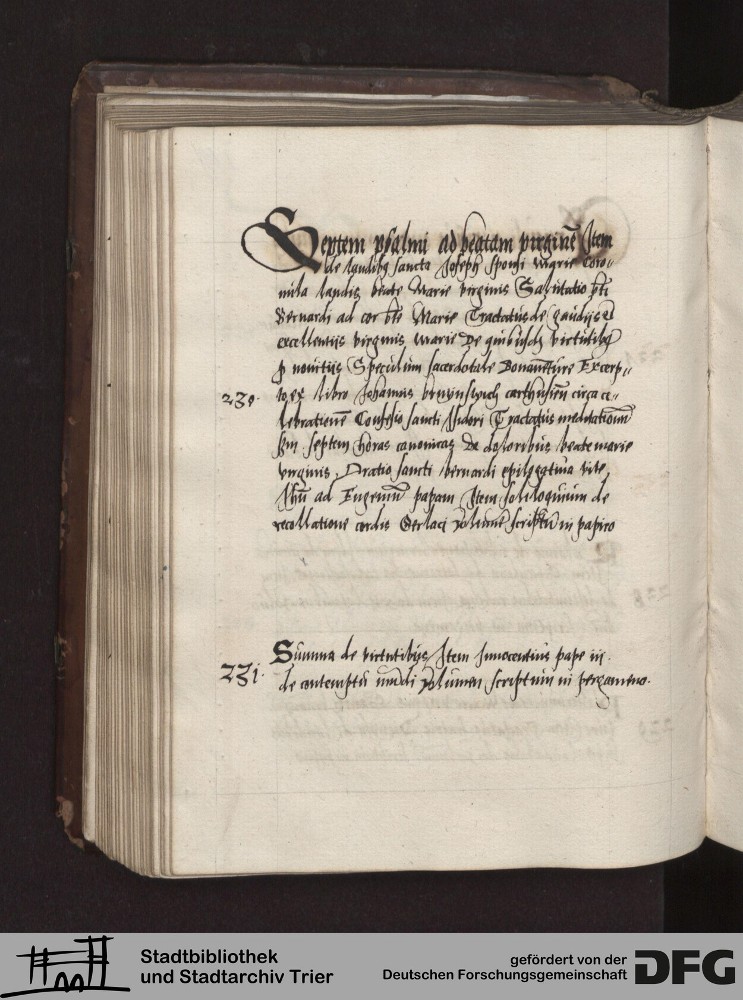 Septem psalmi ad beatam virginē Item
de laudibꝫ sancti Joseph sponsi marie Coro-
nula laudis beate Marie virginis Salutatio bti
Bernardi ad cor bte Marie Tractatus de gaudijs et
excellentijs virginis marie De quibusdā virtutibꝫ
p nouitijs Speculum sacerdotale Bonauēture Excerp-
230. ex libro Johannis brunswich carthusien circa ce-
lebrationē Confessio sancti Isidori Tractatus meditationū
scdm septem horas canonicas De doloribus beate marie
virginis. Oratio sancti bernardi epilogatiua vite
Jhu ad Eugeniū papam Item soliloquium de
recollatione cordis Gerlaci Volumē scriptū in papiro
Summa de virtutibus Item Innocentius pape iij.
231. de contemptu mūdi Volumen scriptum in pergameno.
Stadtbibliothek
und Stadtarchiv Trier
gefördert von der
Deutschen Forschungsgemeinschaft
DFG